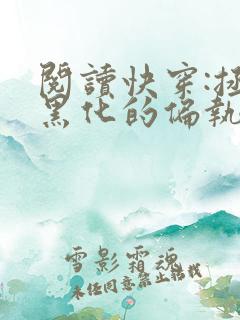 閱讀快穿:拯
黑化的偏執
雪影霜魂
未经同意禁止转载